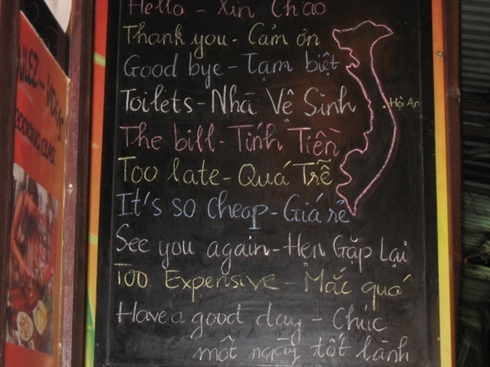 Hello - Xin Chào
Thank you - Cám ơn
Good bye - Tạm biệt
Toilets - Nhà Vệ Sinh
Hội An
The bill - Tính Tiền
Too late - Quá Trễ
It's so cheap - Giá rẻ
See you again - Hẹn Gặp Lại
Too Expensive - Mắc quá
Have a good day - Chúc
một ngày tốt lành